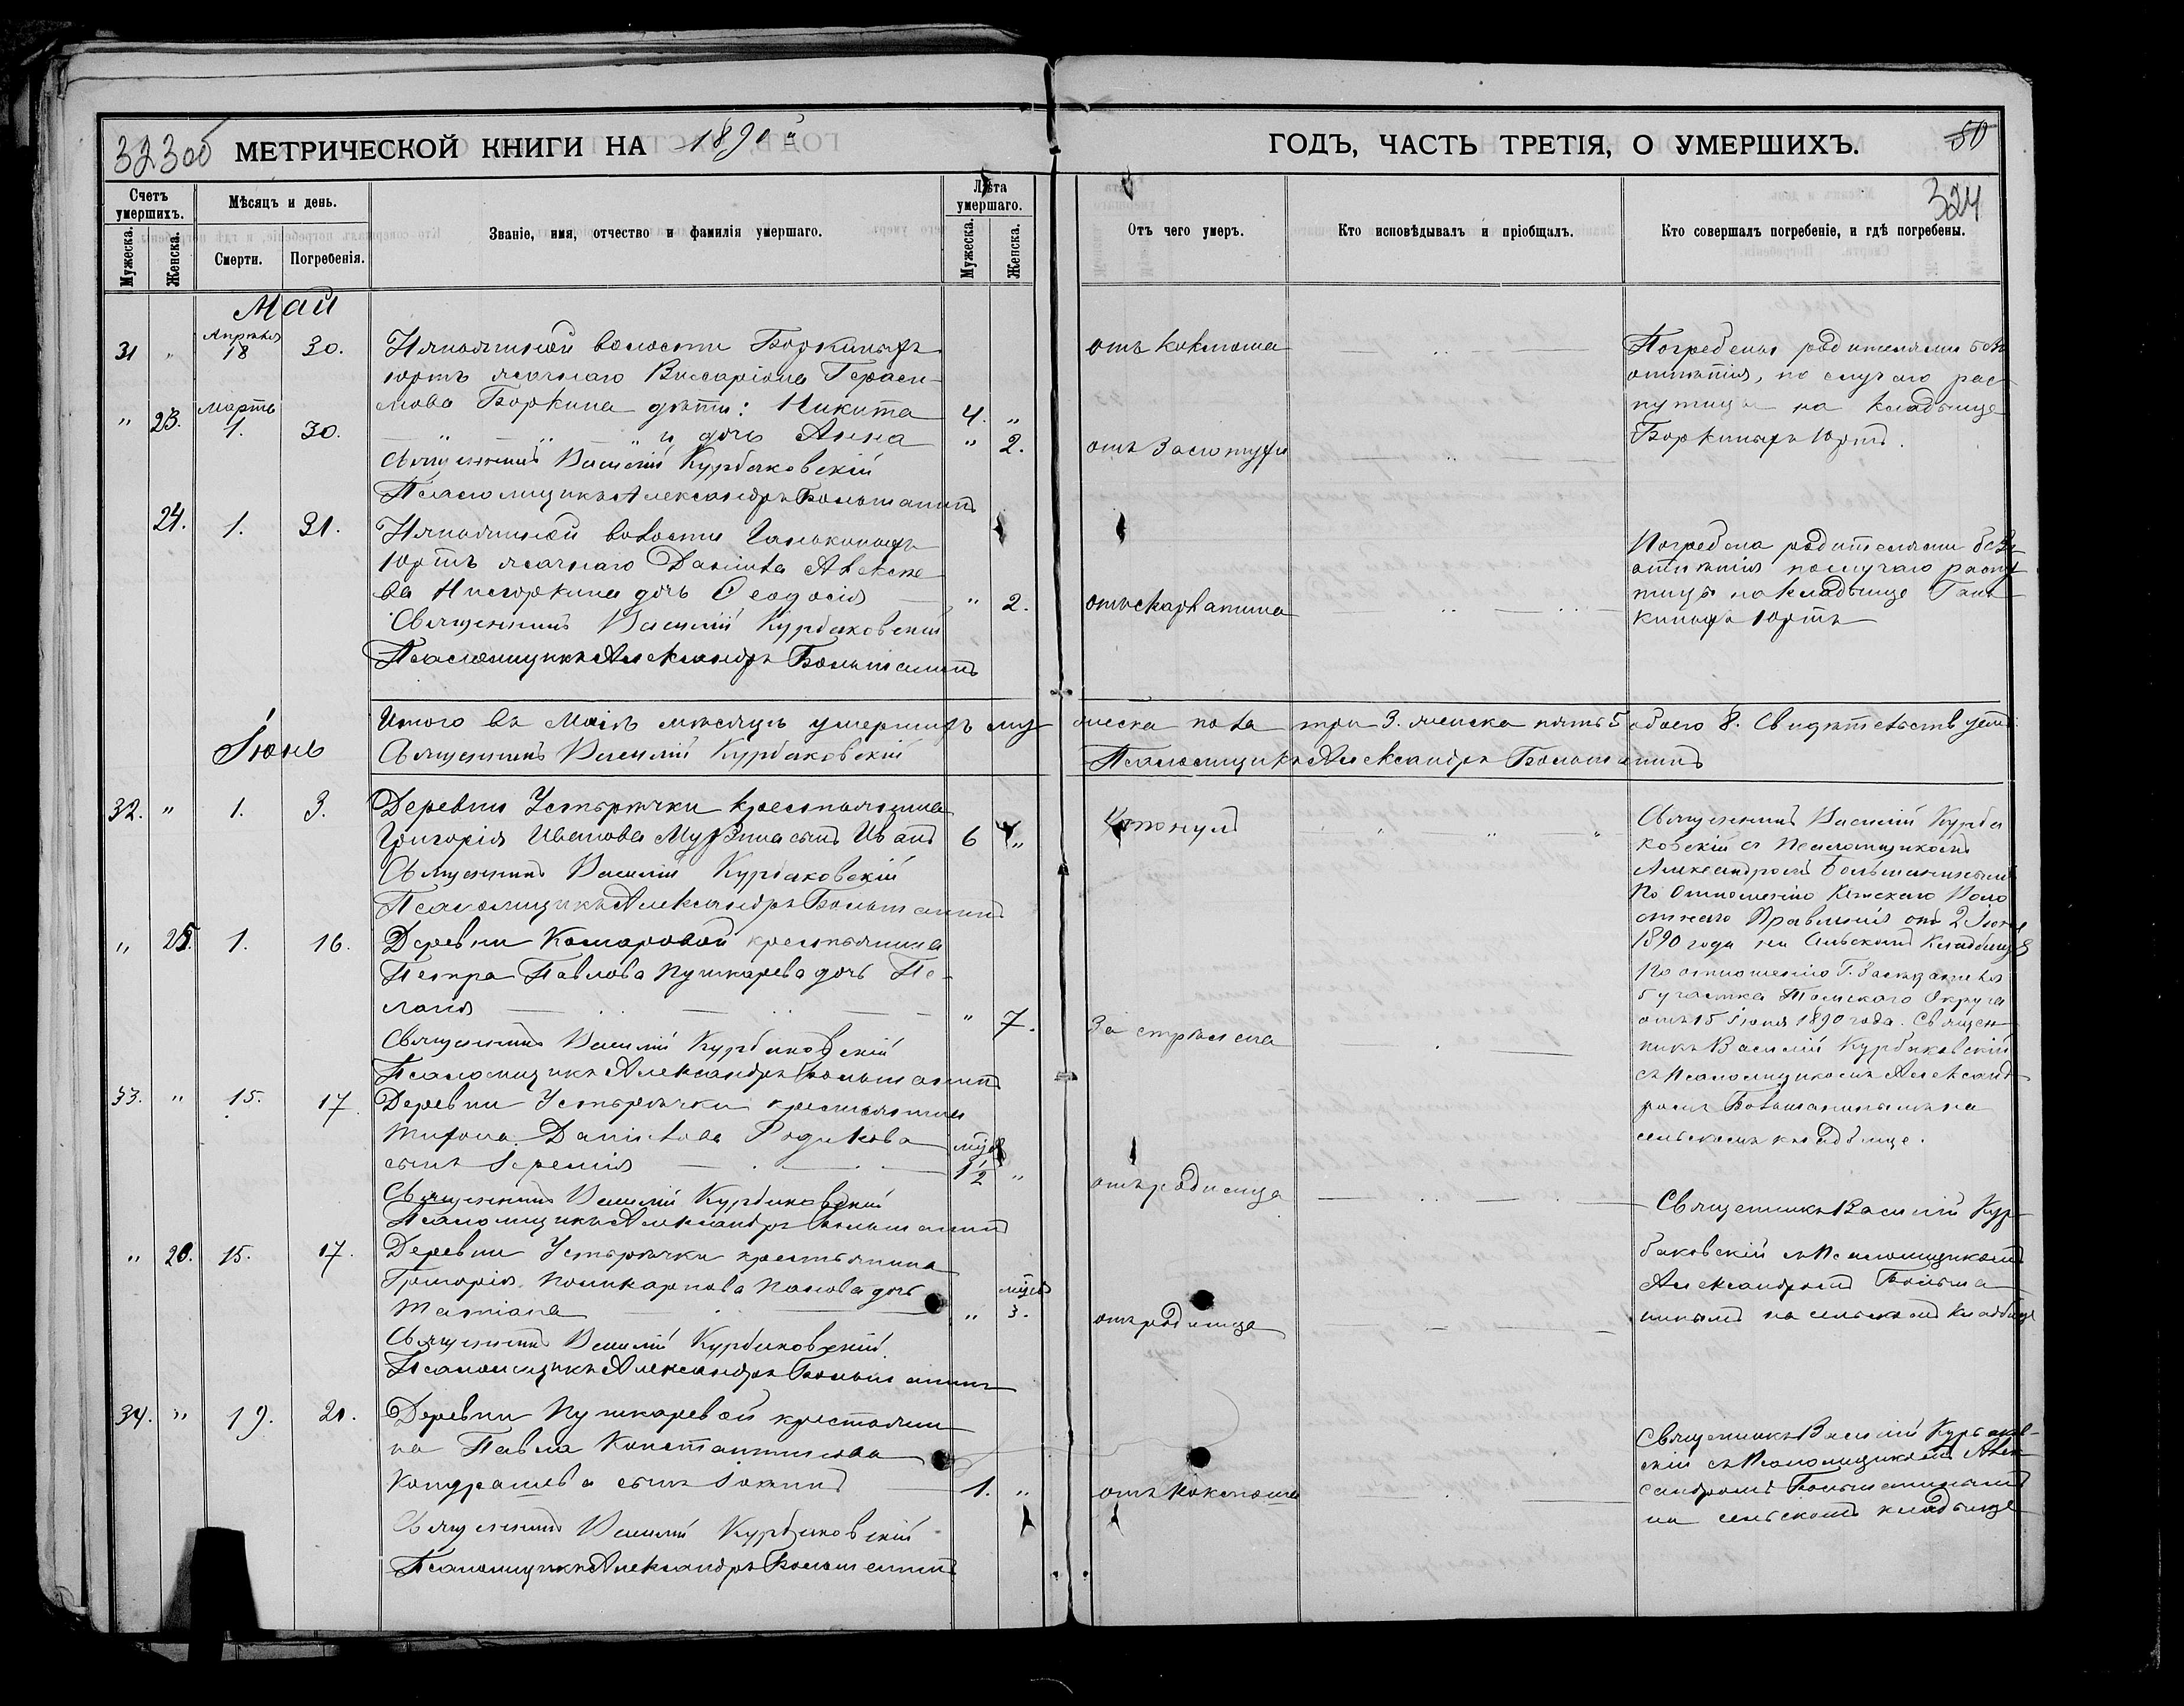 323об МЕТРИЧЕСКОЙ КНИГИ НА 1890й ГОДЪ, ЧАСТЬ ТРЕТІЯ, О УМЕРШИХЪ. 50
324
Счетъ умершихъ.
Мужеска.
Женска.
Мѣсяцъ и день.
Смерти.
Погребенія.
Званіе, имя, отчество и фамилія умершаго.
Лѣта умершаго.
Мужеска.
Женска.
Отъ чего умеръ.
Кто исповѣдывалъ и пріобщалъ.
Кто совершалъ погребеніе, и гдѣ погребены.
Май
31 " Апрѣля 18 30.
волости Боркиныхъ
юртъ ясачнаго Виссаріона Гераси-
мова Боркина дѣти: Никита 4. "
отъ коклюша
" 23. Мартъ 1. 30.
" " " и дочь Анна " 2.
отъ Золотухи
Священникъ Василій Курбаковскій
Псаломщикъ Александръ Большанинъ
Погребены родителями безъ
отпѣтія, по случаю рас-
путицы на кладбище
Боркиныхъ Юртъ.
24. 1. 31.
волости Ганькиныхъ
Юртъ ясачнаго Даніила Алексѣе
ва дочь Ѳеодосія " 2.
отъ скарлатина
Священникъ Василій Курбаковскій
Псаломщикъ Александръ Большанинъ
Погребена родителями безъ
отпѣтія по случаю распу
тицы на кладбище Гань
киныхъ Юртъ
Итого въ Маѣ мѣсяцѣ умершихъ му жеска пола три 3. женска пять 5 обоего 8. Свидѣтельствуетъ:
Священникъ Василій Курбаковскій Псаломщикъ Александръ Большанинъ
Іюнь
32. " 1. 3.
Деревни Устьрѣчки крестьянина
Григорія Иванова Мурзина сынъ Иванъ 6 "
Утонулъ
Священникъ Василій Курбаковскій
Псаломщикъ Александръ Большанинъ
Священникъ Василій Курба
ковскій съ Псаломщикомъ
Александромъ Большанинымъ
По Отношенію Кетскаго Воло
стнаго Правленія отъ 2 Іюня
1890 года на Сельскомъ Кладбищѣ
" 25. 1. 16.
Деревни Комаровой крестьянина
Петра Павлова Пушкарева дочь Пе-
лагія " 7.
Застрѣлена
Священникъ Василій Курбаковскій
Псаломщикъ Александръ Большанинъ
По отношенію Г. Засѣдателя
5 участка Томскаго Округа
отъ 15 Іюня 1890 года. Священ
никъ Василій Курбаковскій
съ Псаломщикомъ Александ
ромъ Большанинымъ на
сельскомъ кладбище.
33. " 15. 17
Деревни Устьрѣчки крестьянина
Даніилова Родикова мѣся
сынъ Іеремія 1½ "
отъ родимца
Священникъ Василій Курбаковскій
Псаломщикъ Александръ Большанинъ
Священникъ Василій Кур
баковскій съ Псаломщикомъ
Александромъ Больша
нинымъ на сельскомъ кладбище
" 26. 15. 17.
Деревни Устьрѣчки крестьянина
Григорія Поликарпова Панова дочь мѣся
Татіана " 3.
отъ родимца
Священникъ Василій Курбаковскій
Псаломщикъ Александръ Большанинъ
34. " 19. 21.
Деревни Пушкаревой крестьяни
на Павла Константинова
Кондрашева сынъ Іоаннъ 1. "
отъ коклюша
Священникъ Василій Курбаковскій
Псаломщикъ Александръ Большанинъ
Священникъ Василій Курбаков-
скій съ Псаломщикомъ Алек
сандромъ Большанинымъ
на сельскомъ кладбище